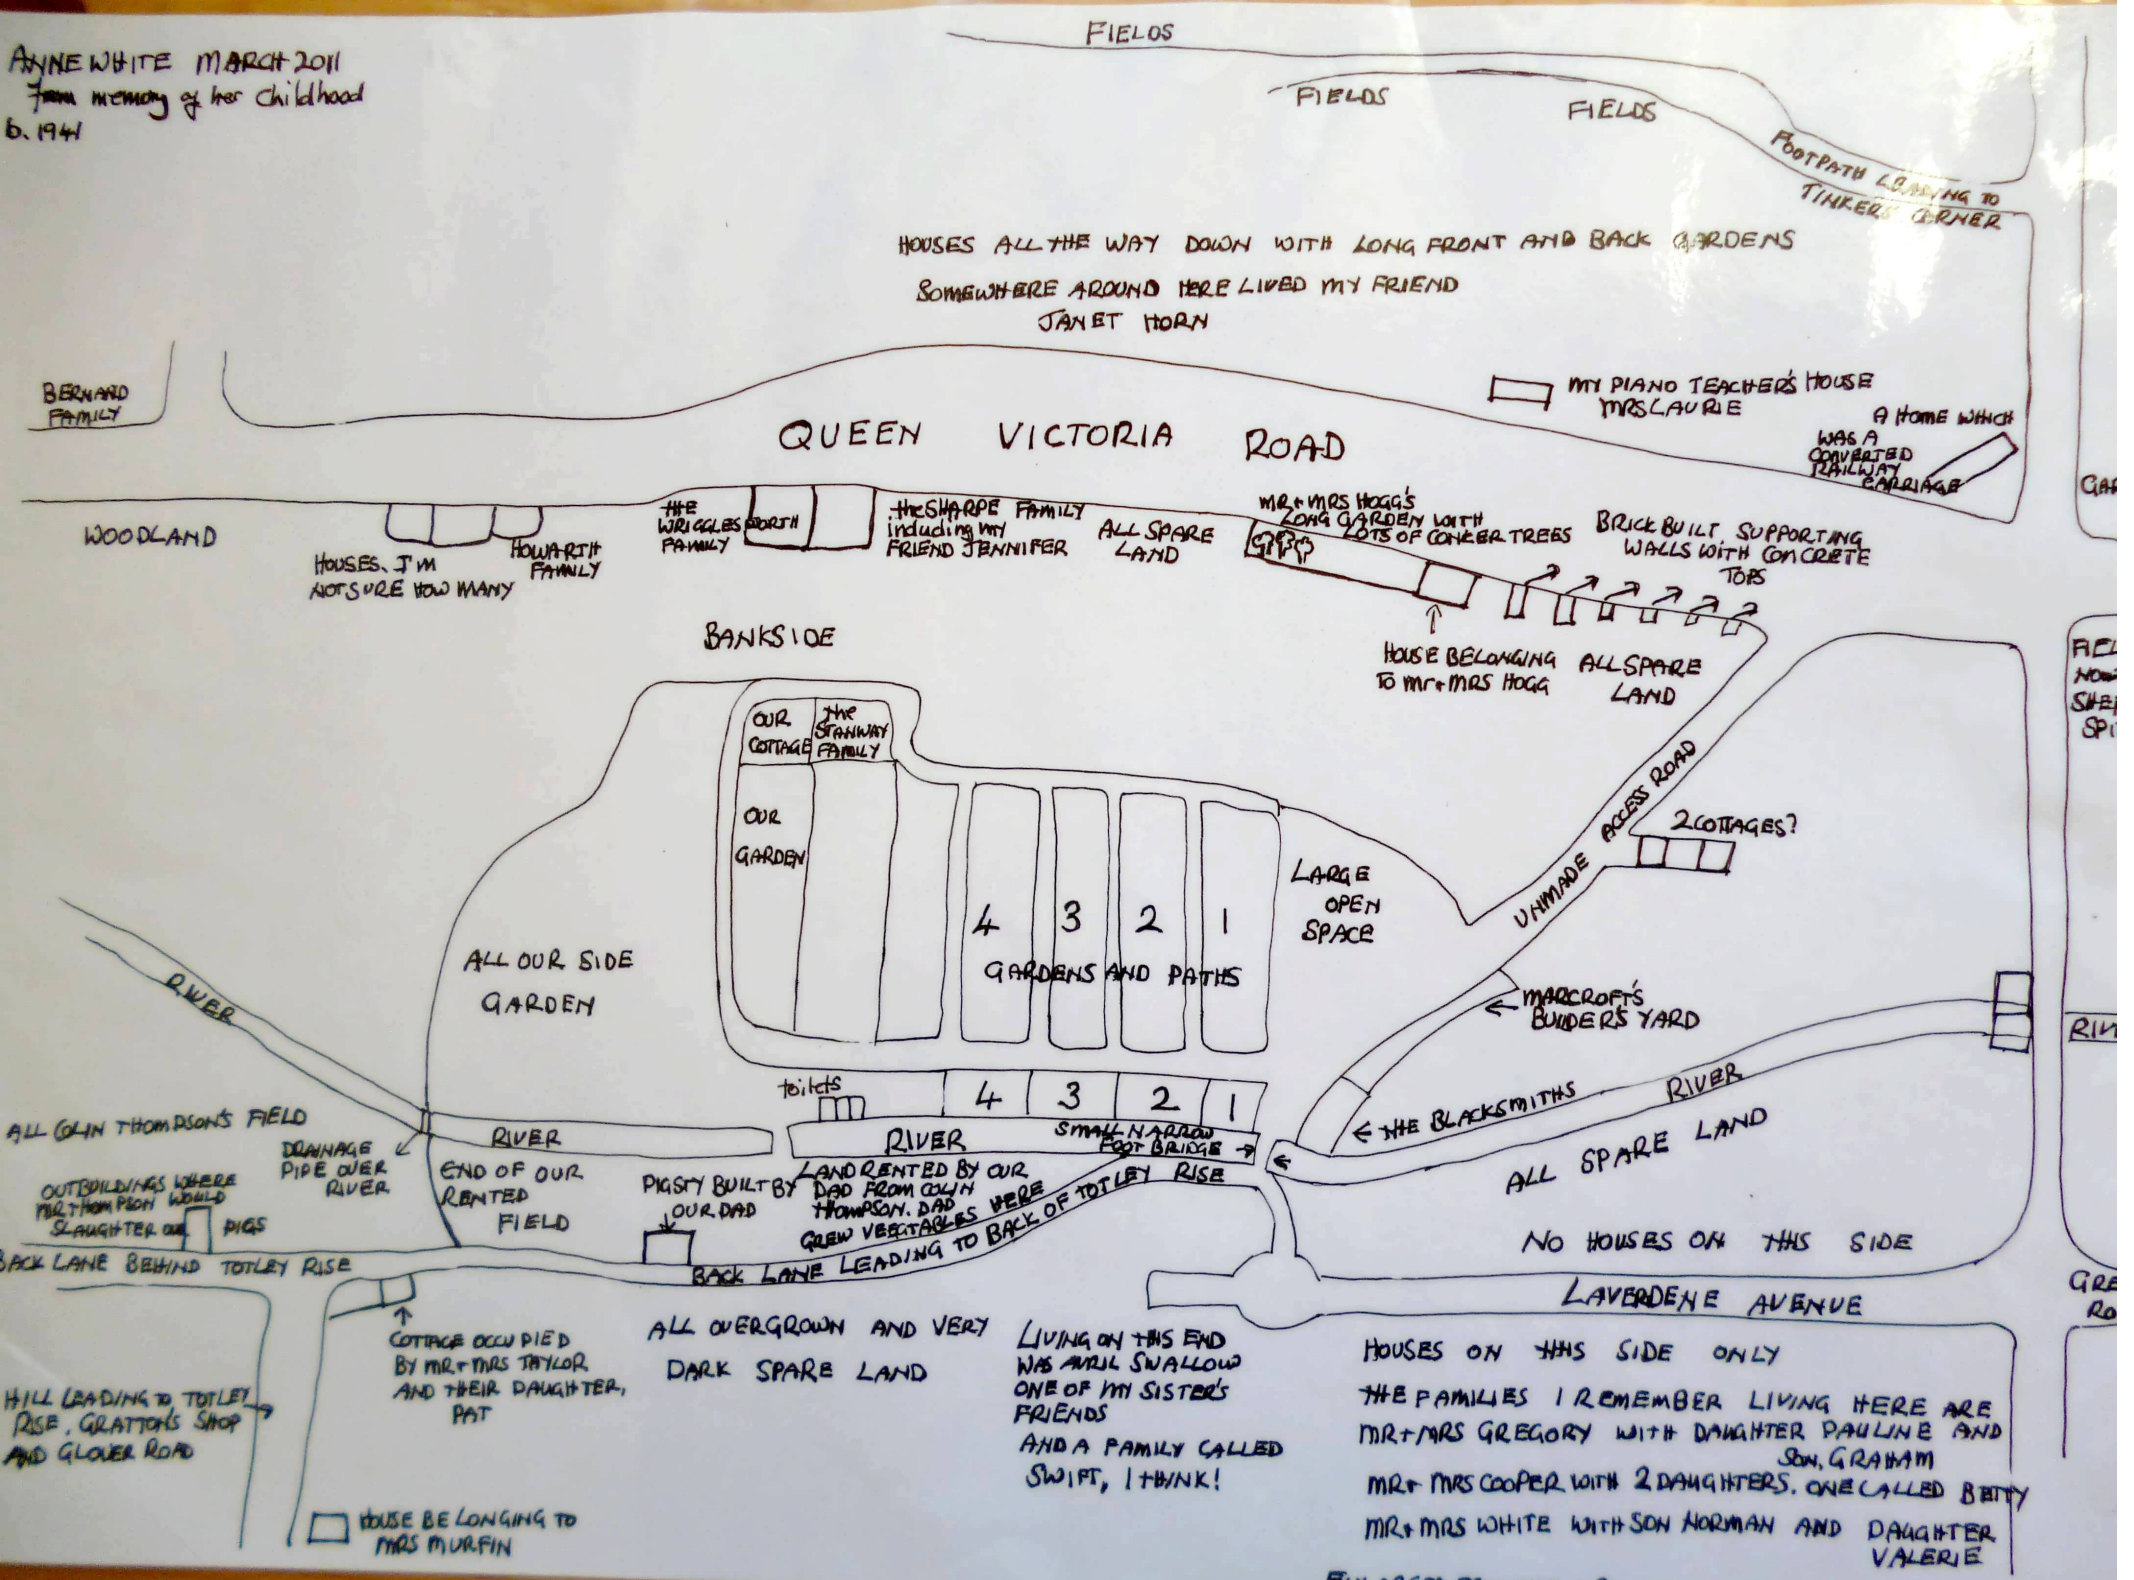 ANNE WHITE MARCH 2011
From memory of her childhood
b. 1941
FIELDS
FIELDS
FIELDS
FOOTPATH LEADING TO
TINKERS CORNER
HOUSES ALL THE WAY DOWN WITH LONG FRONT AND BACK GARDENS
SOMEWHERE AROUND HERE LIVED MY FRIEND
JANET HORN
BERNARD
FAMILY
QUEEN VICTORIA ROAD
MY PIANO TEACHER'S HOUSE
MRS LAURIE
A HOME WHICH
WAS A
CONVERTED
RAILWAY
CARRIAGE
GAR
WOODLAND
HOUSES. I'M
NOT SURE HOW MANY
HOWARTH
FAMILY
THE
WRIGGLESWORTH
FAMILY
the SHARPE FAMILY
including my
FRIEND JENNIFER
ALL SPARE
LAND
MR + MRS HOGG'S
LONG GARDEN WITH
LOTS OF CONKER TREES
BRICK BUILT SUPPORTING
WALLS WITH CONCRETE
TOPS
BANKSIDE
HOUSE BELONGING
TO MR + MRS HOGG
ALL SPARE
LAND
FIEL
NOW
SHE
SPI
OUR
COTTAGE
the
STANWAY
FAMILY
OUR
GARDEN
UNMADE ACCESS ROAD
2 COTTAGES?
LARGE
OPEN
SPACE
4 3 2 1
GARDENS AND PATHS
ALL OUR SIDE
GARDEN
RIVER
MARCROFT'S
BUILDER'S YARD
RIV
toilets
4 3 2 1
THE BLACKSMITHS
RIVER
ALL SPARE LAND
ALL COLIN THOMPSON'S FIELD
DRAINAGE
PIPE OVER
RIVER
RIVER
RIVER
SMALL NARROW
FOOT BRIDGE
END OF OUR
RENTED
FIELD
PIGSTY BUILT BY
OUR DAD
LAND RENTED BY OUR
DAD FROM COLIN
THOMPSON. DAD
GREW VEEGTABLES HERE
OUTBUILDINGS WHERE
MR THOMPSON WOULD
SLAUGHTER OUR PIGS
BACK LANE BEHIND TOTLEY RISE
BACK LANE LEADING TO BACK OF TOTLEY RISE
NO HOUSES ON THIS SIDE
LAVERDENE AVENUE
GRE
RO
COTTAGE OCCUPIED
BY MR + MRS TAYLOR
AND THEIR DAUGHTER,
PAT
ALL OVERGROWN AND VERY
DARK SPARE LAND
LIVING ON THIS END
WAS AVRIL SWALLOW
ONE OF MY SISTER'S
FRIENDS
AND A FAMILY CALLED
SWIFT, I THINK!
HOUSES ON THIS SIDE ONLY
THE FAMILIES I REMEMBER LIVING HERE ARE
MR + MRS GREGORY WITH DAUGHTER PAULINE AND
SON, GRAHAM
MR + MRS COOPER WITH 2 DAUGHTERS. ONE CALLED BETTY
MR + MRS WHITE WITH SON NORMAN AND DAUGHTER
VALERIE
HILL LEADING TO TOTLEY
RISE, GRATTON'S SHOP
AND GLOVER ROAD
HOUSE BELONGING TO
MRS MURFIN